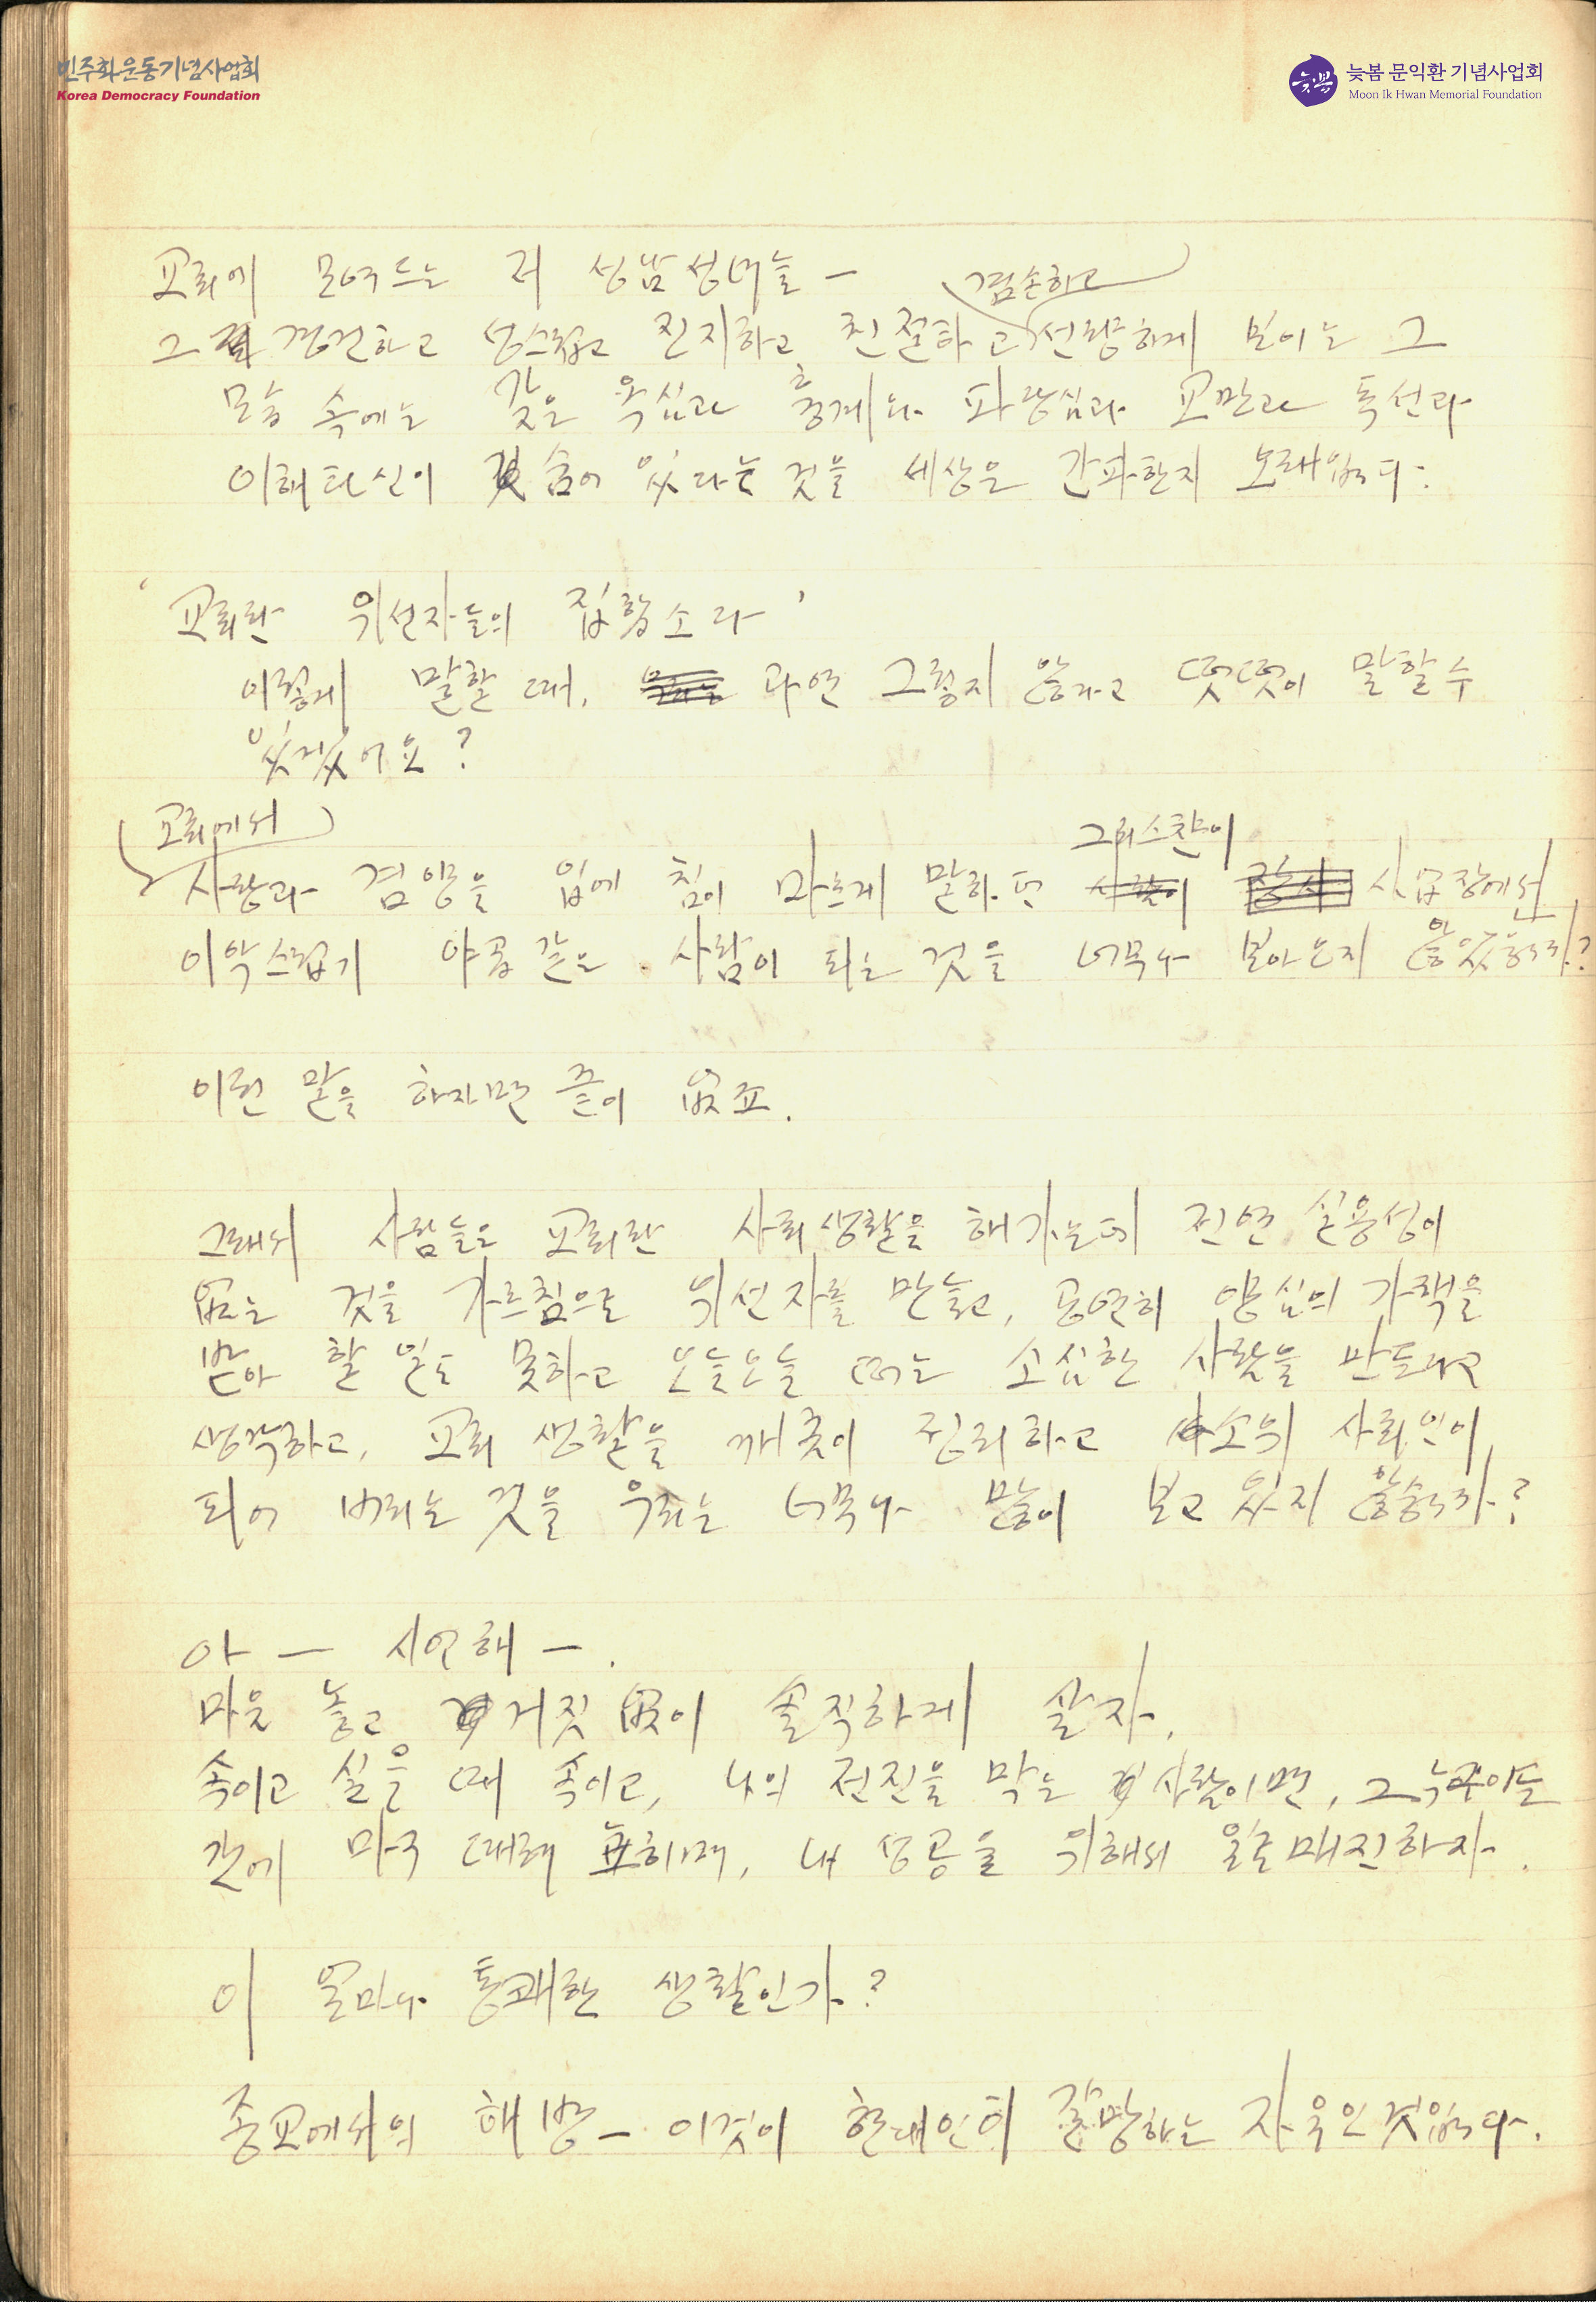 민주화운동기념사업회
Korea Democracy Foundation
늦봄
늦봄 문익환 기념사업회
Moon Ik Hwan Memorial Foundation
교회에 모여드는 저 성남성녀들 —
겸손하고
그 경건하고 성스럽고 진지하고 친절하고 선량하게 보이는 그
모습 속에는 갖은 욕심과 흉계와 교만과 독선과
이해타산이 숨어 있다는 것을 세상은 간파한지 오래입니다.
'교회란 위선자들의 집합소라'
이렇게 말할 때, 과연 그렇지 않다고 떳떳이 말할 수
있겠어요?
교회에서
그리스챤이
사랑과 겸양을 입에 침이 마르게 말하던 사업장에선
이악스럽기 야곱 같은 사람이 되는 것을 너무나 보아오지 않았습니까?
이런 말을 하자면 끝이 없죠.
그래서 사람들은 교회란 사회생활을 해가는데 전연 실용성이
없는 것을 가르침으로 위선자를 만들고, 공연히 양심의 가책을
받아 할 일도 못하고 오늘오늘 떠는 소심한 사람을 만든다고
생각하고, 교회 생활을 깨끗이 정리하고 소위 사회인이
되어 버리는 것을 우리는 너무나 많이 보고 있지 않습니까?
아 — 시연해 —.
마음 놓고 거짓 없이 솔직하게 살자.
속이고 싶을 때 속이고, 나의 전진을 막는 사람이면, 그 누구이든
간에 마구 때려 눞히며, 내 성공을 위해서 일로매진하자.
이 얼마나 통쾌한 생활인가?
종교에서의 해방 — 이것이 현대인이 갈망하는 자유인 것입니다.